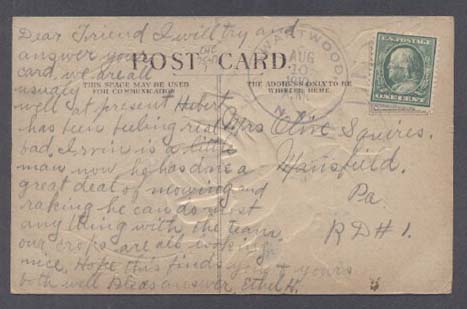 Dear Friend I will try and
answer your
card. we are all
usualy
well at present Hubert
has been feeling real
bad. Irvin is a little
man now, he has done a
great deal of mowing and
raking he can do most
any thing with the team.
our crops are all looking
nice. Hope this finds you & yours
both well Pleas answer. Ethel H.
POST CARD.
THIS SPACE MAY BE USED
FOR COMMUNICATION
THE ADDRESS ONLY TO BE
WRITTEN HERE
AUG
U.S. POSTAGE
ONE CENT
Mrs Olive Squires.
Mansfield.
Pa.
R D # 1.